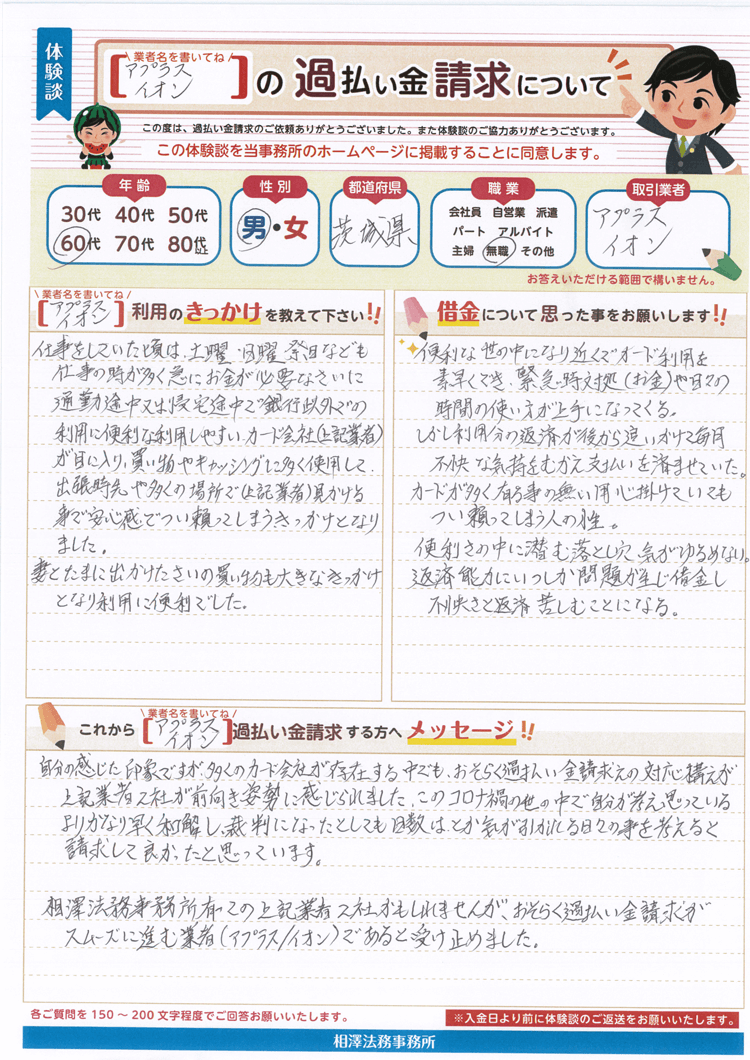 体験談
業者名を書いてね
[アプラス イオン]の過払い金請求について
この度は、過払い金請求のご依頼ありがとうございました。また体験談のご協力ありがとうございます。
この体験談を当事務所のホームページに掲載することに同意します。
年齢
30代 40代 50代
60代 70代 80代以上
性別
男・女
都道府県
茨城県
職業
会社員 自営業 派遣
パート アルバイト
主婦 無職 その他
取引業者
アプラス
イオン
お答えいただける範囲で構いません。
業者名を書いてね
[アプラス イオン]利用のきっかけを教えて下さい!!
仕事をしていた頃は、土曜 日曜 祭日なども
仕事の時が多く急にお金が必要なさいに
通勤途中又は帰宅途中で銀行以外での
利用に便利な利用しやすい、カード会社(上記業者)
が目に入り、買い物やキャッシングに多く使用して
出張時先や多くの場所で(上記業者)見かける
事で安心感でつい頼ってしまうきっかけとなり
ました。
妻とたまに出かけたさいの買い物も大きなきっかけ
となり利用に便利でした。
借金について思った事をお願いします!!
便利な世の中になり近くでカード利用を
素早くでき、緊急時対処(お金)や日々の
時間の使い方が上手になってくる。
しかし利用分の返済が後から追いかけて毎月
不快な気持をむかえ支払いを済ませていた。
カードが多く有る事の無い用心掛けていても
つい頼ってしまう人の性。
便利さの中に潜む落とし穴、気がゆるめない。
返済能力にいつしか問題が生じ借金し
不快さと返済 苦しむことになる。
業者名を書いてね
これから[アプラス イオン]過払い金請求する方へメッセージ!!
自分の感じた印象ですが、多くのカード会社が存在する中でも、おそらく過払い金請求えの対応構えが
上記業者2社が前向き姿勢に感じられました、このコロナ禍の世の中で自分が考え思っている
よりかなり早く和解し、裁判になったとしても回数は とか気が引かれる日々の事を考えると
請求して良かったと思っています。
相澤法務事務所有っての上記業者2社かもしれませんが、おそらく過払い金請求が
スムーズに進む業者(アプラス/イオン)であると受け止めました。
各ご質問を150～200文字程度でご回答お願いいたします。
※入金日より前に体験談のご返送をお願いいたします。
相澤法務事務所